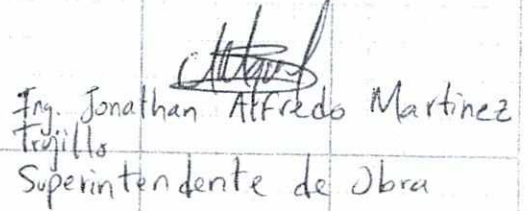 Ing. Jonathan Alfredo Martinez
Trujillo
Superintendente de Obra